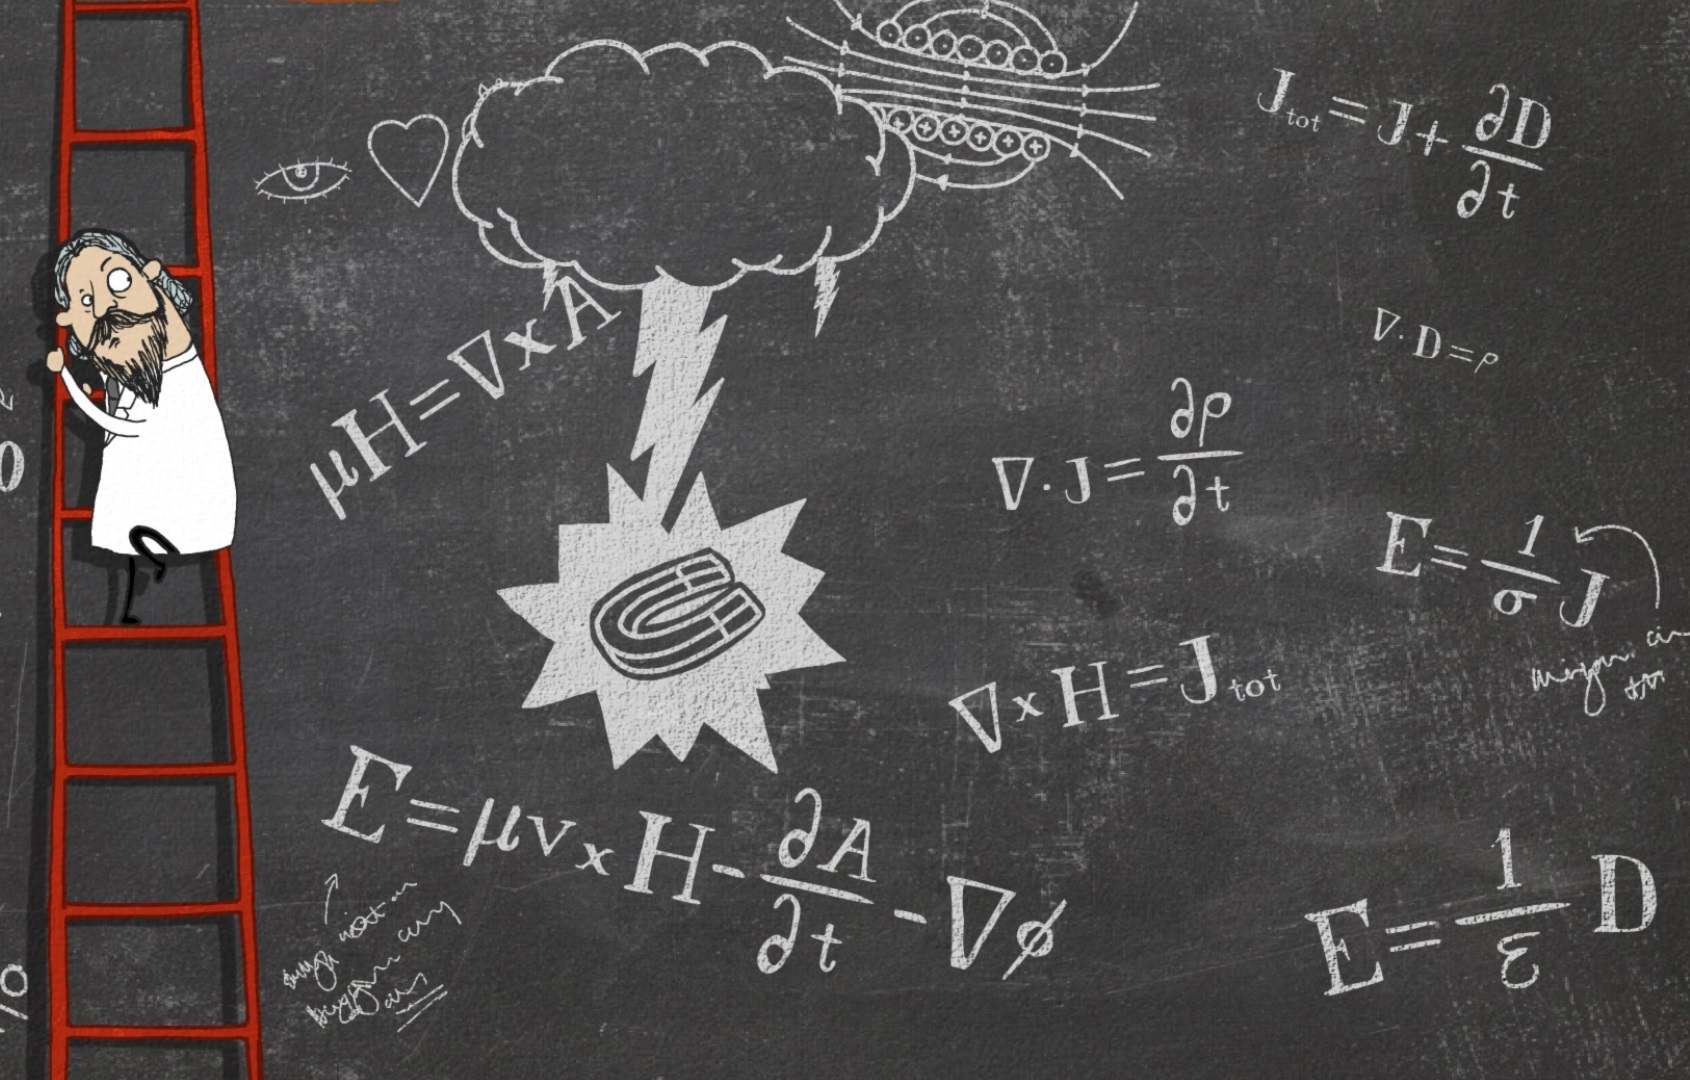 J_tot = J + ∂D/∂t
μH = ∇ × A
∇ · D = ρ
∇ · J = ∂ρ/∂t
E = 1/σ J
∇ × H = J_tot
E = μv × H - ∂A/∂t - ∇ϕ
E = 1/ε D